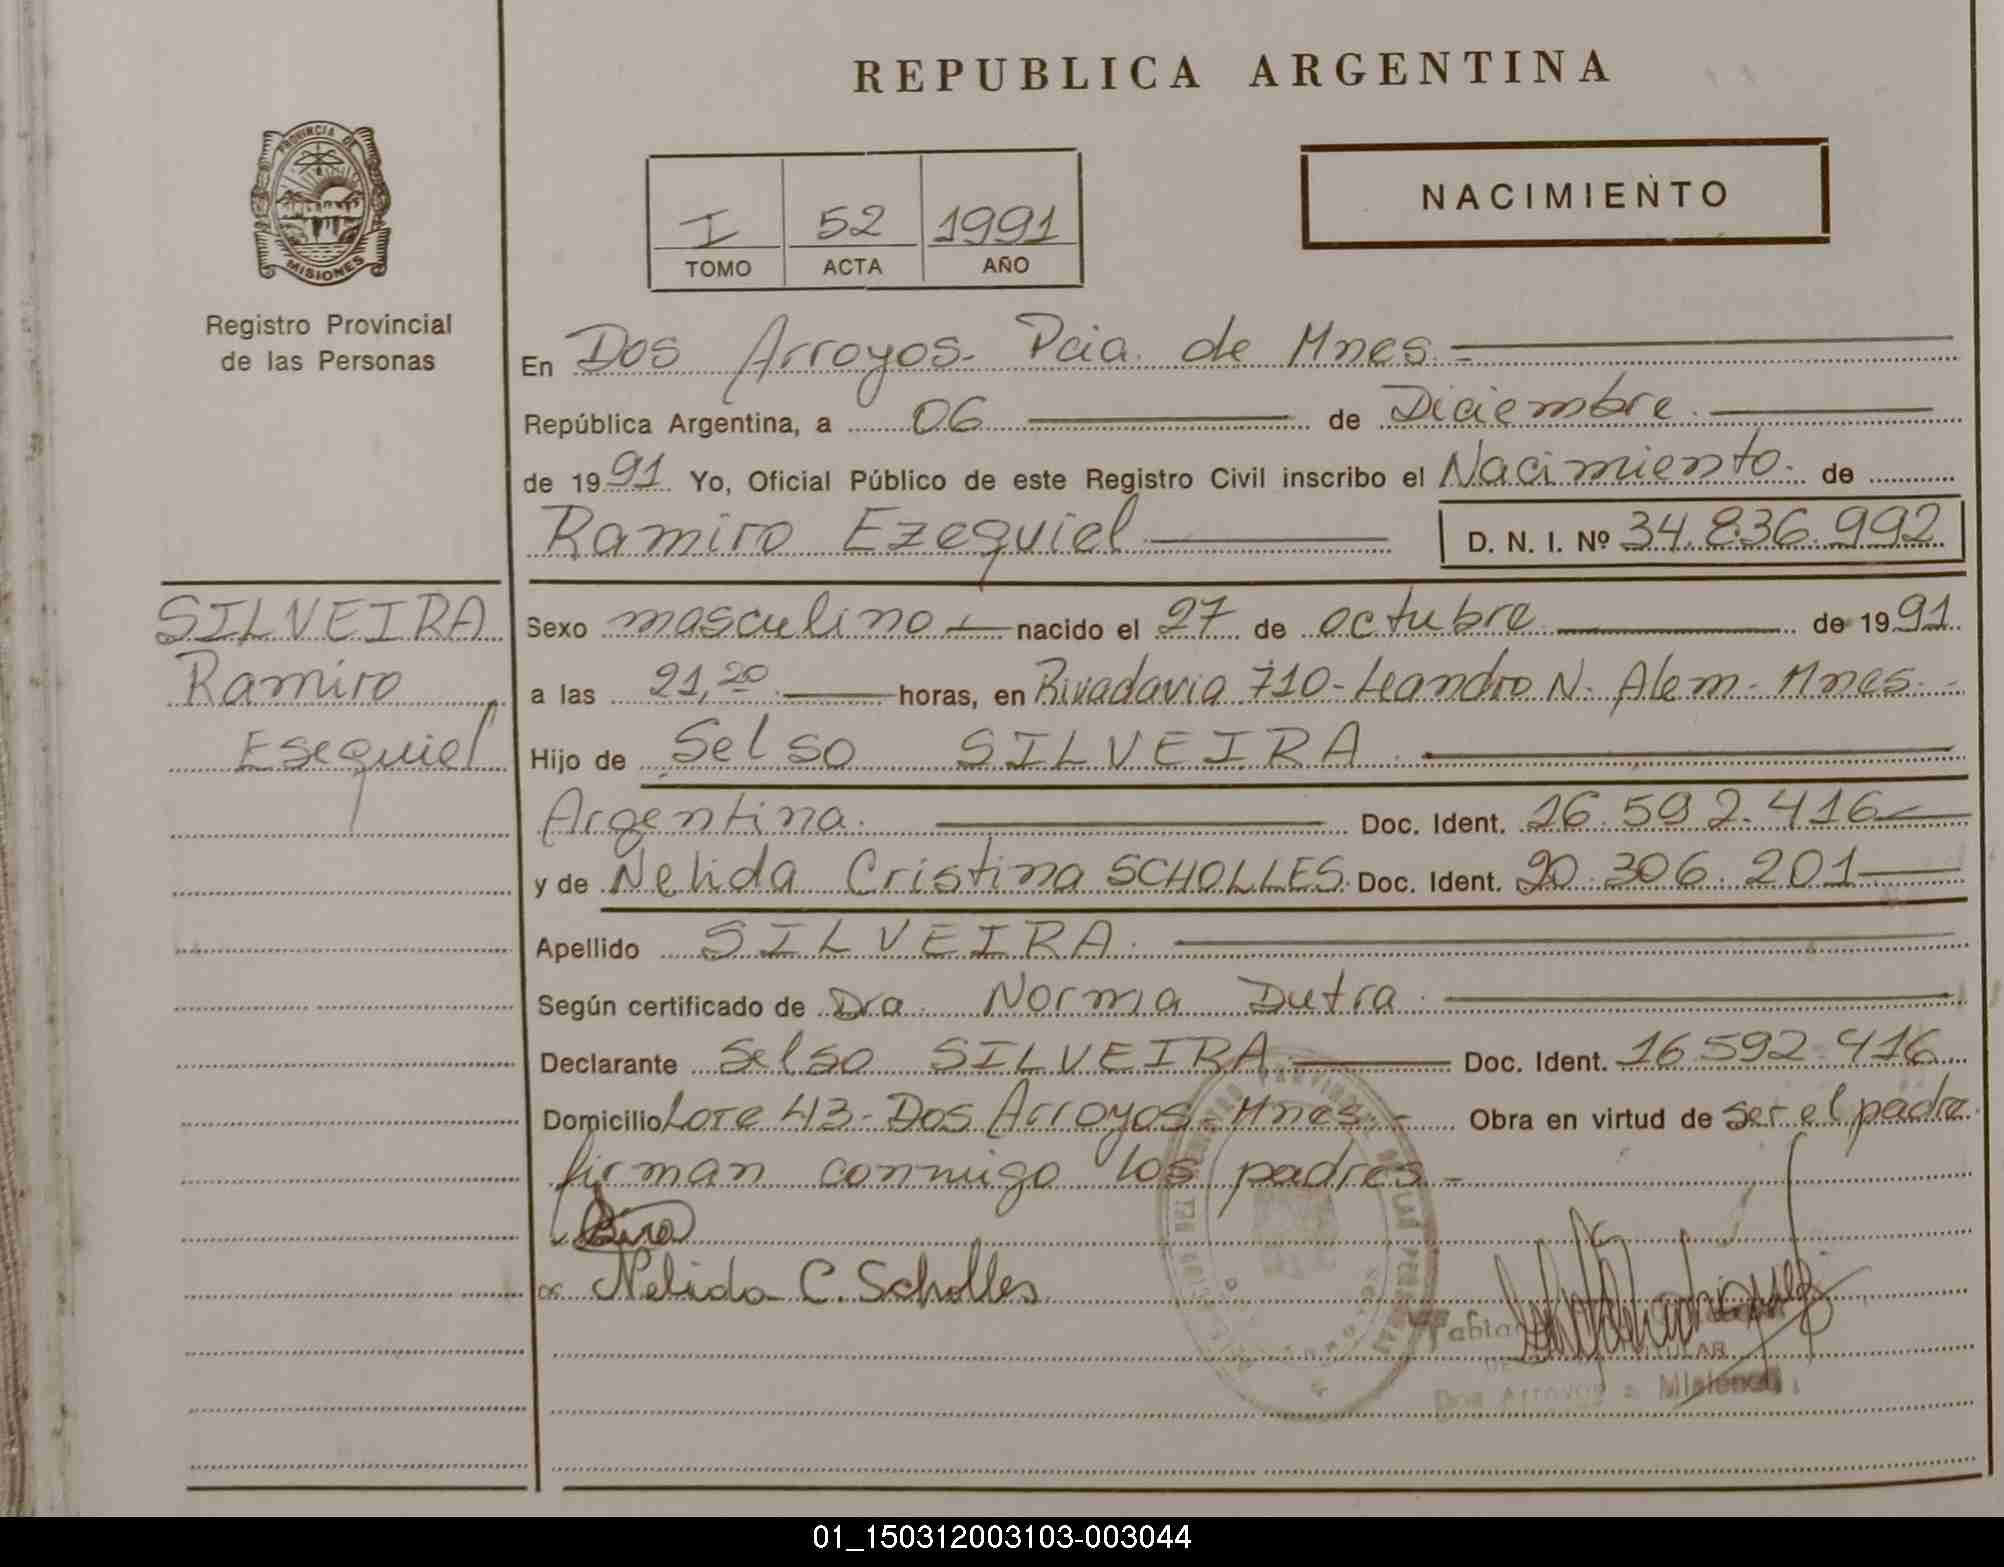 REPUBLICA ARGENTINA
PROVINCIA DE
MISIONES
Registro Provincial
de las Personas
I 52 1991
TOMO ACTA AÑO
NACIMIENTO
En Dos Arroyos - Pcia. de Mnes. -
República Argentina, a 06 de Diciembre.
de 1991. Yo, Oficial Público de este Registro Civil inscribo el Nacimiento. de
Ramiro Ezequiel D. N. I. Nº 34.836.992
SILVEIRA
Ramiro
Esequiel
Sexo masculino nacido el 27 de octubre de 1991.
a las 21,20 horas, en Rivadavia 710 - Leandro N. Alem - Mnes. -
Hijo de Selso SILVEIRA.
Argentina. Doc. Ident. 16.592.416
y de Nelida Cristina SCHOLLES. Doc. Ident. 20.306.201
Apellido SILVEIRA.
Según certificado de Dra. Norma Dutra.
Declarante Selso SILVEIRA. Doc. Ident. 16.592.416
Domicilio Lote 43 - Dos Arroyos - Mnes. - Obra en virtud de ser el padre.
firman conmigo los padres. -
Nelida C. Scholles
Dos Arroyos - Misiones
01_150312003103-003044